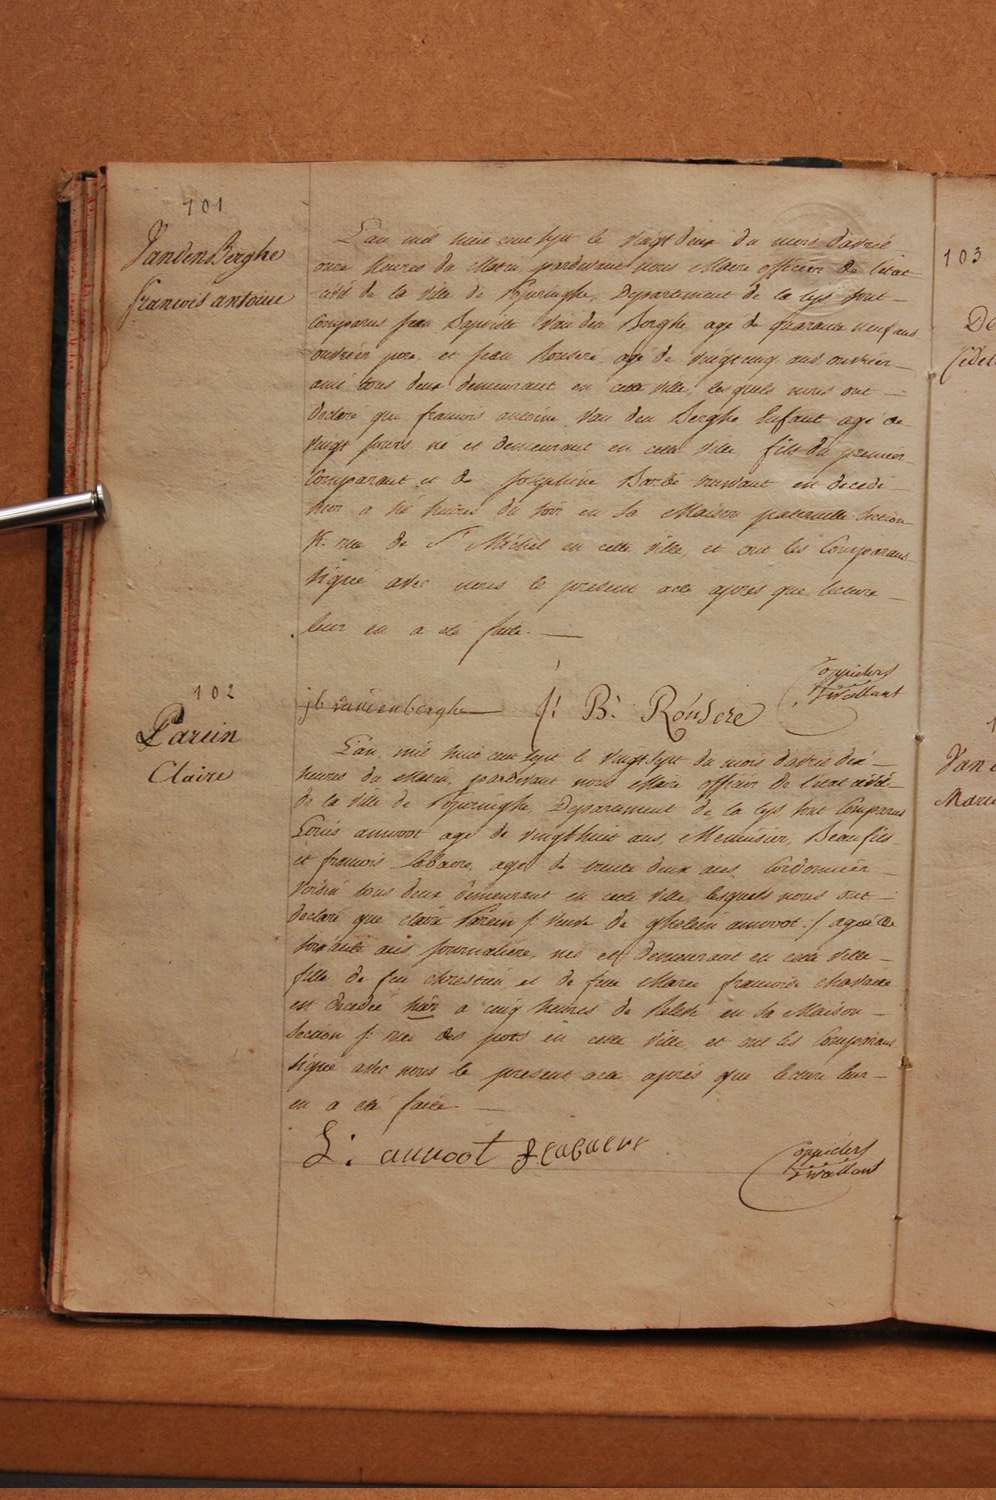 101
VandenBerghe
francois antoine
L'an mil huit cent sept le vingt deux du mois d'avril
onze heures du Matin pardevant nous Maire officier de l'etat
civil de la ville de Poperinghe, Departement de la Lys sont
Comparus jean Baptiste Van den Berghe age de quarante neuf ans
ouvrier pere, et jean Rousere age de vingt cinq ans ouvrier
ami tous deux demeurant en cette ville, lesquels nous ont
Declare que francois antoine Van den Berghe Enfant age de
vingt jours né et demeurant en cette ville fils du premier
Comparant et de Josephine vivant est decedé
hier a six heures du soir en sa Maison paternelle Section
rue de St Michel en cette ville, et ont les Comparans
signé avec nous le present acte après que lecture
leur en a été faite.
jb vandenberghe J: B: Rousere
102
Parein
Claire
L'an mil huit cent sept le vingt sept du mois d'avril dix
heures du Matin, pardevant nous Maire officier de l'etat civil
de la ville de Poperinghe, Departement de la Lys sont Comparus
Louis annoot age de vingt huit ans, Menuisier, Beaufils
et francois Cabaere, age de trente deux ans, Cordonnier
voisin tous deux demeurant en cette ville lesquels nous ont
declaré que claire Parein /: veuve de ghelein annoot :/ agée de
soixante ans journaliere, née et demeurant en cette ville
fille de feu chretien et de feue Marie francoise
est decedée hier a cinq heures de relevée en sa Maison
Section rue des pots en cette ville et ont les Comparans
signé avec nous le present acte après que lecture leur
en a été faite
L: annoot f cabaere
103
De